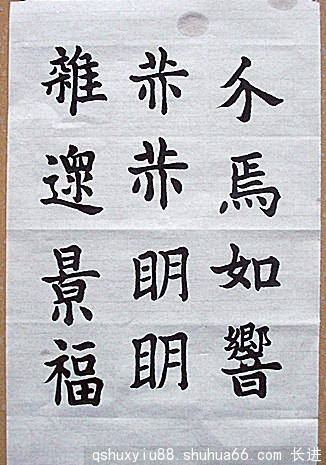 介焉如響
赫赫明明
雜遝景福
qshuxyiu88.shuhua66.com 长进